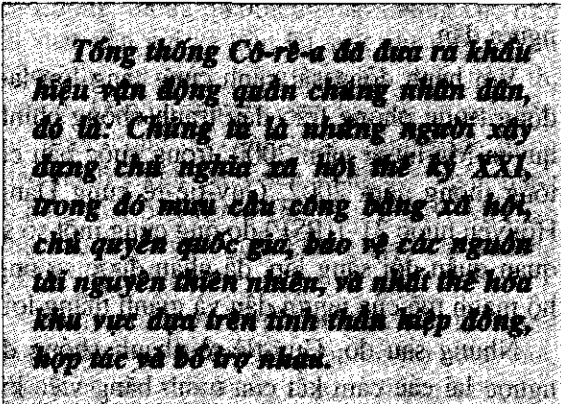 Tổng thống Cô-rê-a đã đưa ra khẩu
hiệu vận động quần chúng nhân dân,
đó là: Chúng ta là những người xây
dựng chủ nghĩa xã hội thế kỷ XXI,
trong đó mưu cầu công bằng xã hội,
chủ quyền quốc gia, bảo vệ các nguồn
tài nguyên thiên nhiên, và nhất thể hóa
khu vực dựa trên tinh thần hiệp đồng,
hợp tác và bổ trợ nhau.